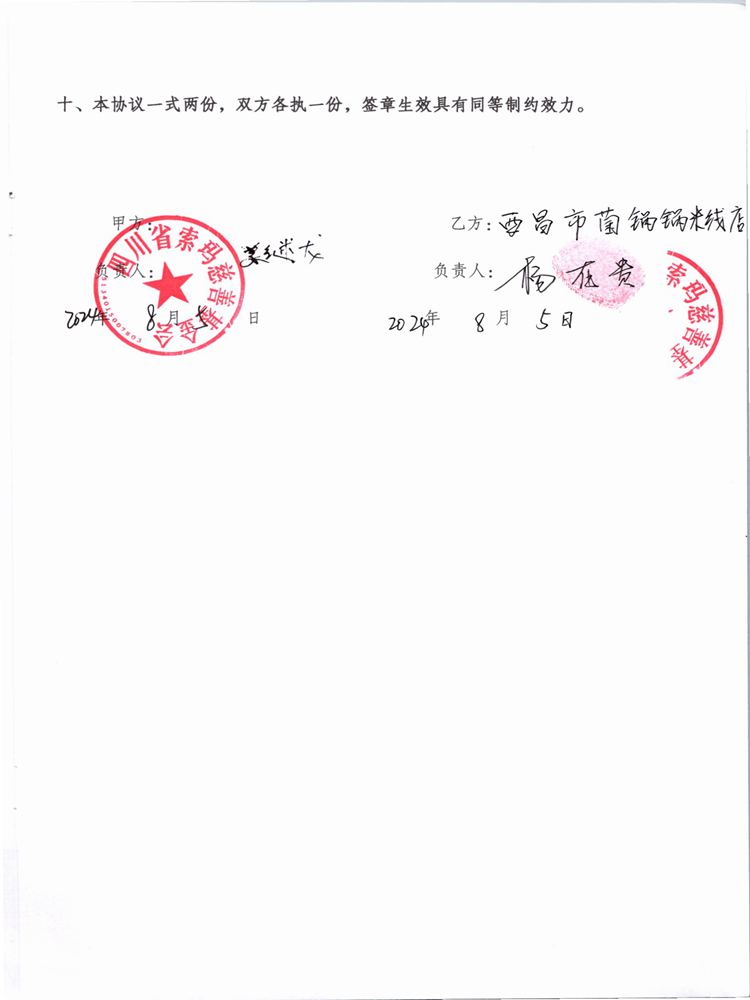 十、本协议一式两份，双方各执一份，签章生效具有同等制约效力。
甲方：
乙方：西昌市菌锅锅米线店
负责人：
负责人：杨在贵
2024年 8月 5日
2024年 8月 5日
四川省索玛慈善基金会
索玛慈善基